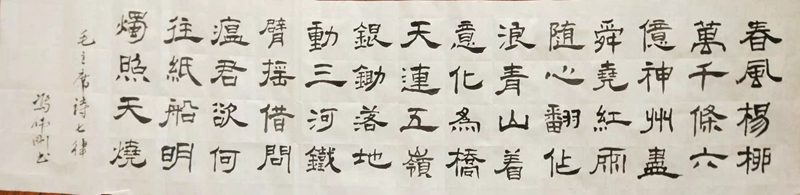 春風楊柳
萬千條六
億神州盡
舜堯紅雨
随心翻作
浪青山着
意化為橋
天連五嶺
銀鋤落地
動三河鐵
臂摇借問
瘟君欲何
往紙船明
燭照天燒
毛主席詩七律
书